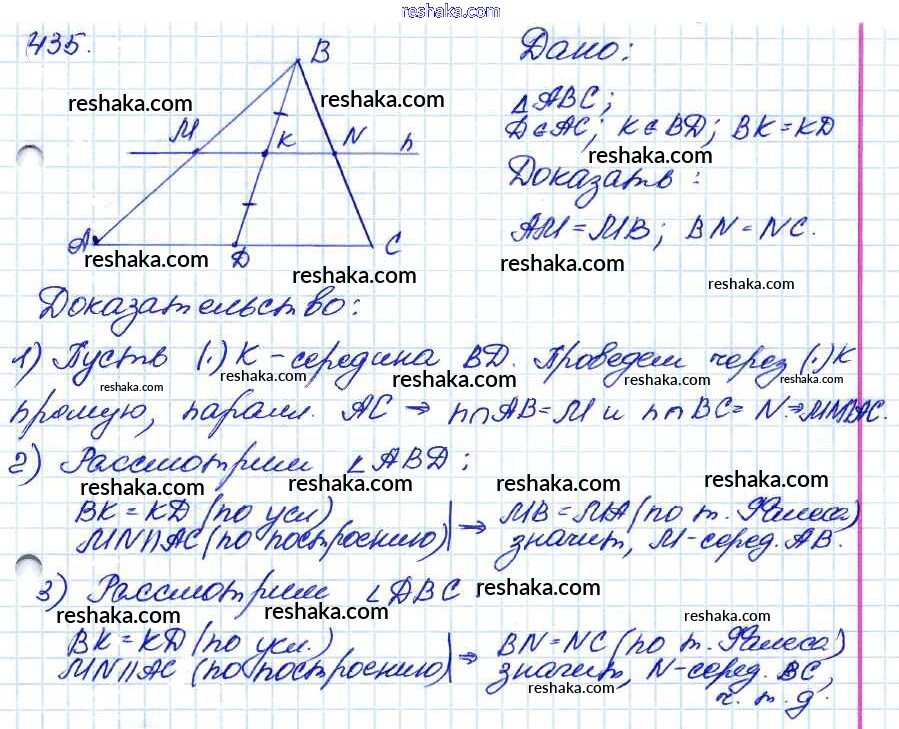 reshaka.com
435.
B
Дано:
reshaka.com
reshaka.com
△ABC;
M
K
N
n
D∈AC; K∈BD; BK=KD
reshaka.com
Доказать:
A
D
C
AM=MB; BN=NC.
reshaka.com
reshaka.com
reshaka.com
reshaka.com
Доказательство:
1) Пусть (·) K - середина BD. Проведем через (·) K
reshaka.com
reshaka.com
reshaka.com
reshaka.com
reshaka.com
прямую, паралл. AC ⇒ n∩AB=M и n∩BC=N ⇒ MN∥AC.
2) Рассмотрим ∠ABD:
reshaka.com
reshaka.com
reshaka.com
reshaka.com
BK=KD (по усл) ⇒ MB=MA (по т. Фалеса)
MN∥AC (по построению) значит, M-серед. AB.
3) Рассмотрим ∠DBC
reshaka.com
reshaka.com
reshaka.com
reshaka.com
BK=KD (по усл.) ⇒ BN=NC (по т. Фалеса)
MN∥AC (по построению) значит, N-серед. BC,
reshaka.com
ч.т.д.